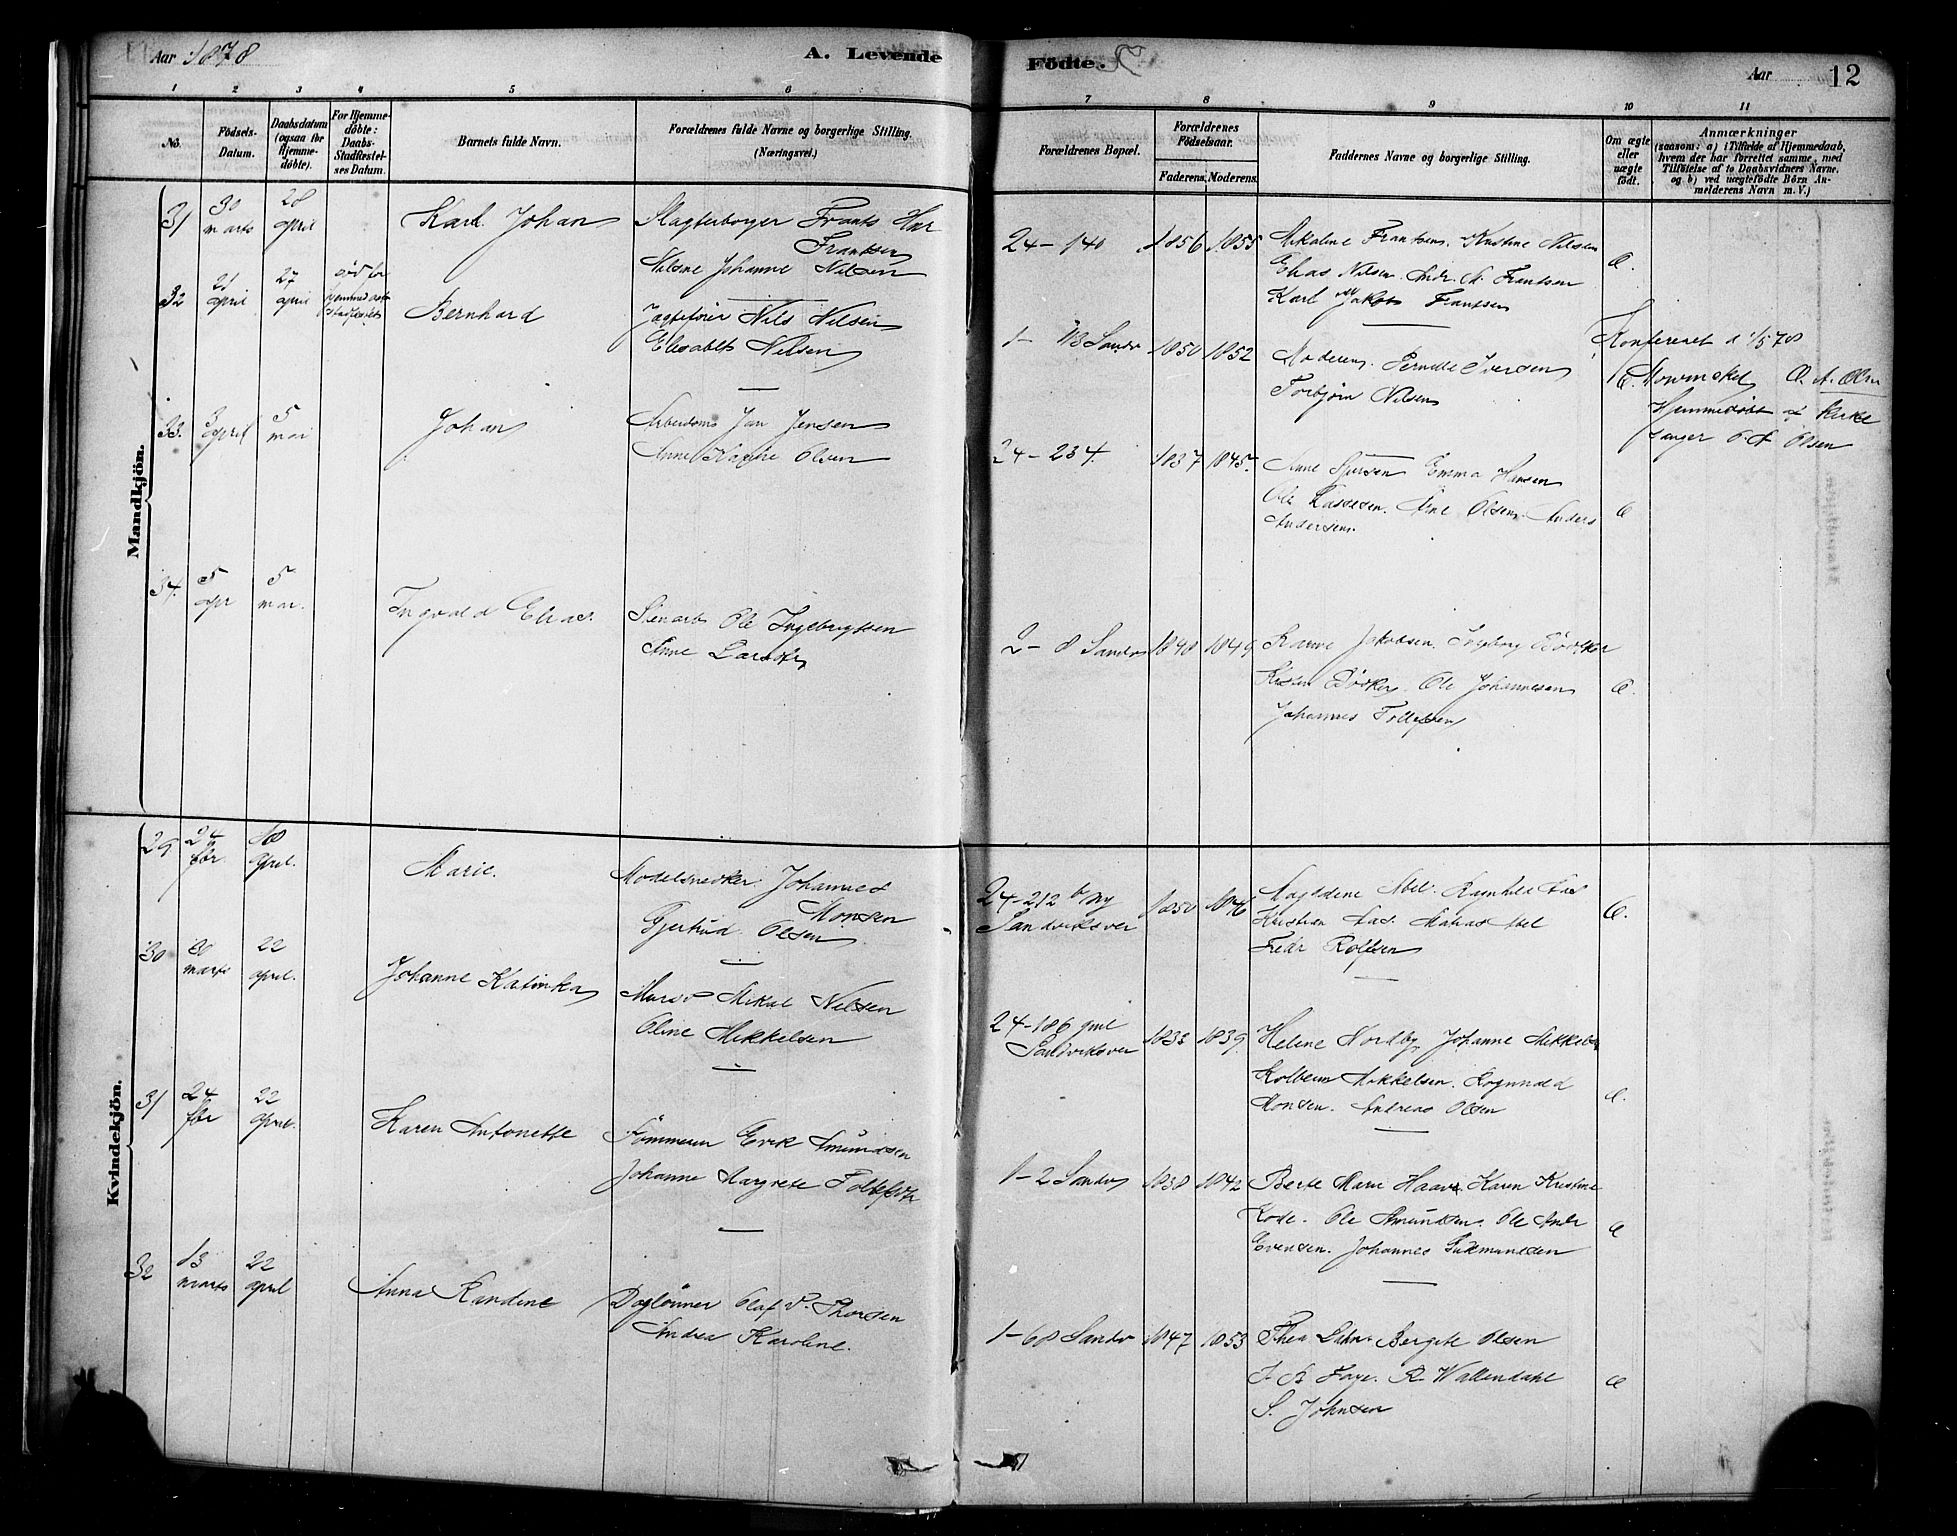 Aar 1878
A. Levende
Födte.
Aar
12
1 2 3 4 5 6 7 8 9 10 11
No.
Födsels-
Datum.
Daabsdatum
(ogsaa for
Hjemme-
döbte).
For Hjemme-
döbte:
Daabs-
Stadfæstel-
ses Datum.
Barnets fulde Navn.
Forældrenes fulde Navne og borgerlige Stilling.
(Næringsvei.)
Forældrenes Bopæl.
Forældrenes
Födselsaar.
Faderens. Moderens.
Faddernes Navne og borgerlige Stilling.
Om ægte
eller
uægte
födt.
Anmærkninger
(saasom: a) i Tilfælde af Hjemmedaab,
hvem der har forrettet samme, med
Tilföielse af to Daabsvidners Navne,
og b) ved uægtefödte Börn An-
melderens Navn m. V.)
Mandkjön.
31
30
marts
28
april
Karl Johan
Slagterborger Frants
Frantsen
Nilsine Johanne Nilsen
24-140
1856 1855
Mikaline Frantsen. Kristine Nilsen
Elias Nilsen. Andr. Frantsen
Karl Jakob Frantsen
32
21
april
27
april
Bernhard
Jagtefører Nils Nilsen
Elisabet Nilsen
1- 113 Sandv
1850 1852
Moderen. Pernille Iversen
Torbjørn Nilsen
Konfereret d 1/5 78
Mowinckel
Hjemmedøbt af Kirke
sanger O. A. Olsen
33.
3
april
5
mai
Johan
Arbeidsm Jan Jensen
Anne Olsen
24-234.
1837 1845.
Anne Sjursen Emma Hansen
Ole Lassesen. Arne Olsen. Anders
Andersen.
34.
5
apr
5
mai.
Ingvald Elias.
Stenarb Ole Ingebrigtsen
Anne Larsdtr
2- 8 Sandv
1848 1849
Jakobsen. Ingborg Bödker
Bödker. Ole Johannesen
Johannes Tollefsen
Kvindekjön.
29
24
fbr
april.
Marie.
Modelsnedker Johannes
Monsen
Gjertrud Olsen
24-212 b ny
Sandviksvei
1850 1846
Magdalene Abel. Ragnhild Aas
Kristian Aas. Matias Abel
Fredr Rolfsen
30
30
marts
22
april.
Johanne Katinka
Murer Mikal Nilsen
Oline Mikkelsen
24-186 gml
Sandviksvei
1833 1839
Helene Nordby Johanne Mikkelsen
Kolbein Mikkelsen. Rognvald
Monsen. Andreas Olsen
31
24
fbr
22
april.
Karen Antonette
Tömmerm Erik Amundsen
Johanne Margrete Tollefsdtr
1-2 Sandv
1838 1842
Berte Marie Haave Karen Kristine
Kode. Ole Amundsen. Ole Andr
Evensen. Johannes Gudmundsen
32
13
marts
22
april
Anna Randine
Daglönner Olaf P. Thorsen
Andrea Karoline.
1-68 Sandv
1847 1853
Thea Dahn. Bergite Olsen
J. B Faye. R. Wallendahl
S. Johnsen